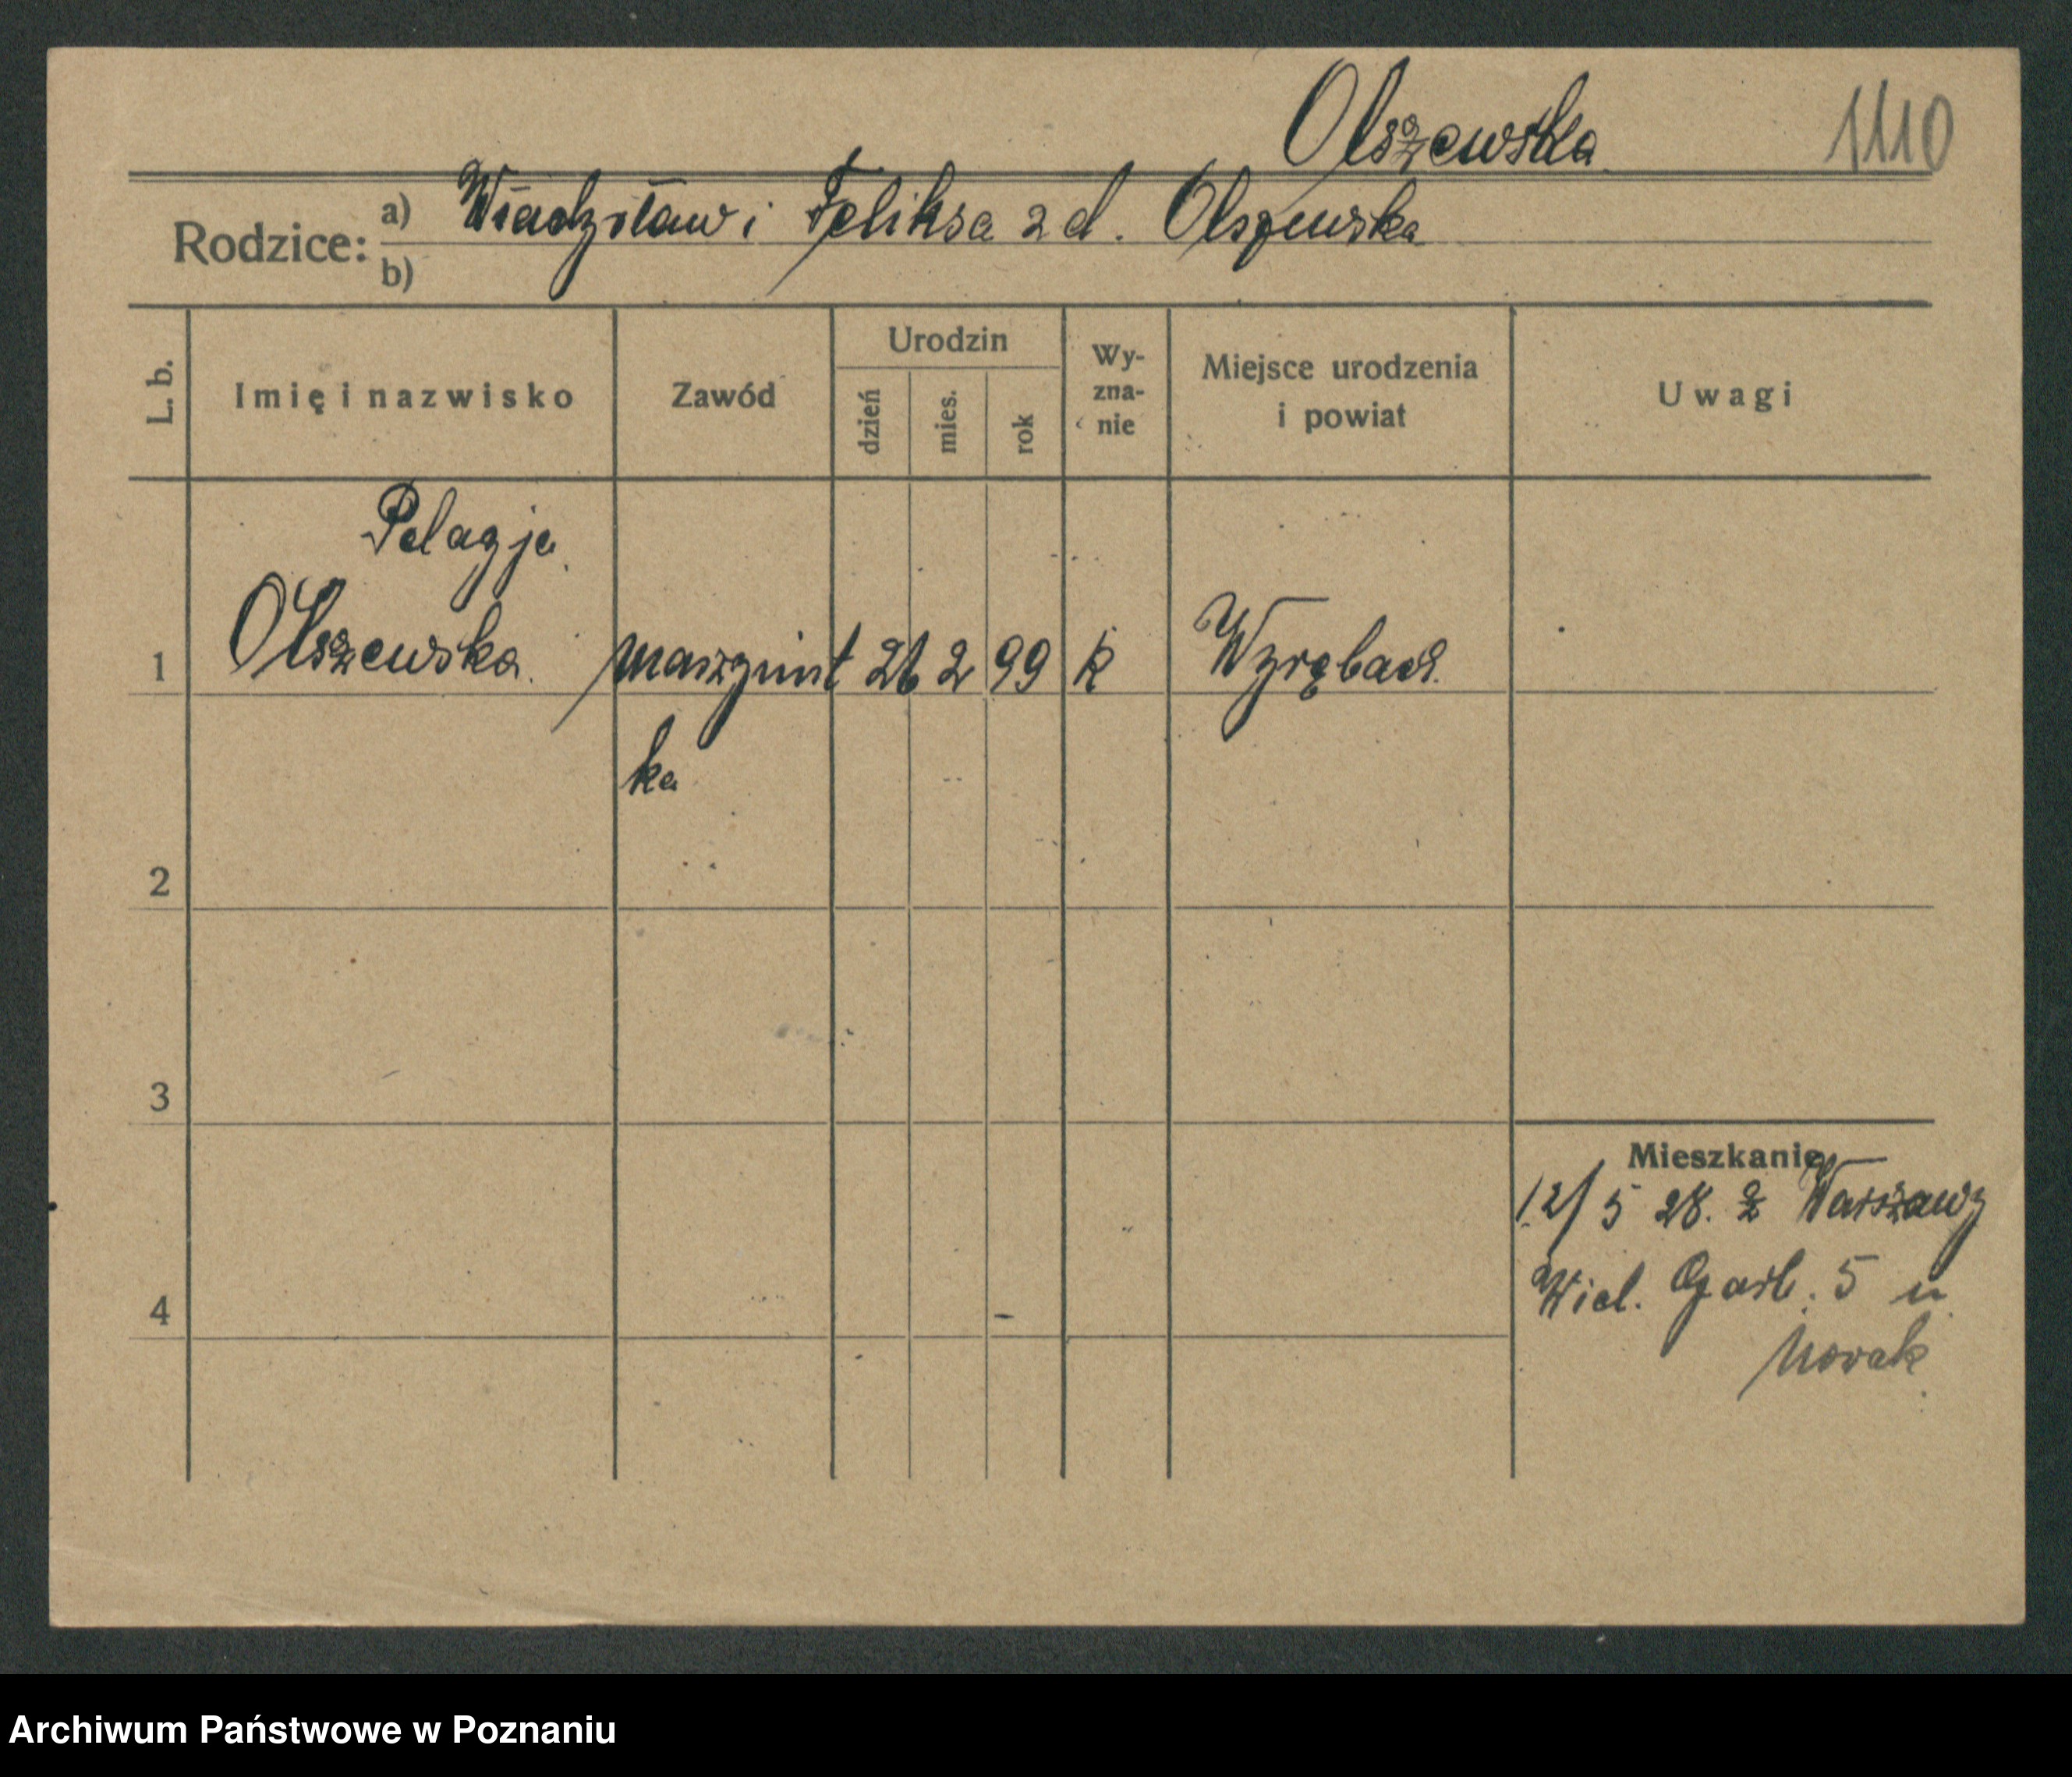 Olszewska 1110
Rodzice: a) Władysław i Feliksa z d. Olszewska
b)
L. b. Imię i nazwisko Zawód Urodzin dzień mies. rok Wy-zna-nie Miejsce urodzenia i powiat Uwagi
Pelagja
1 Olszewska maszynist 26 2 99 k
ka
2
3
Mieszkanie
12/5 28. z Warszawy
4 Wiel. Garb. 5 u
Novak
Archiwum Państwowe w Poznaniu